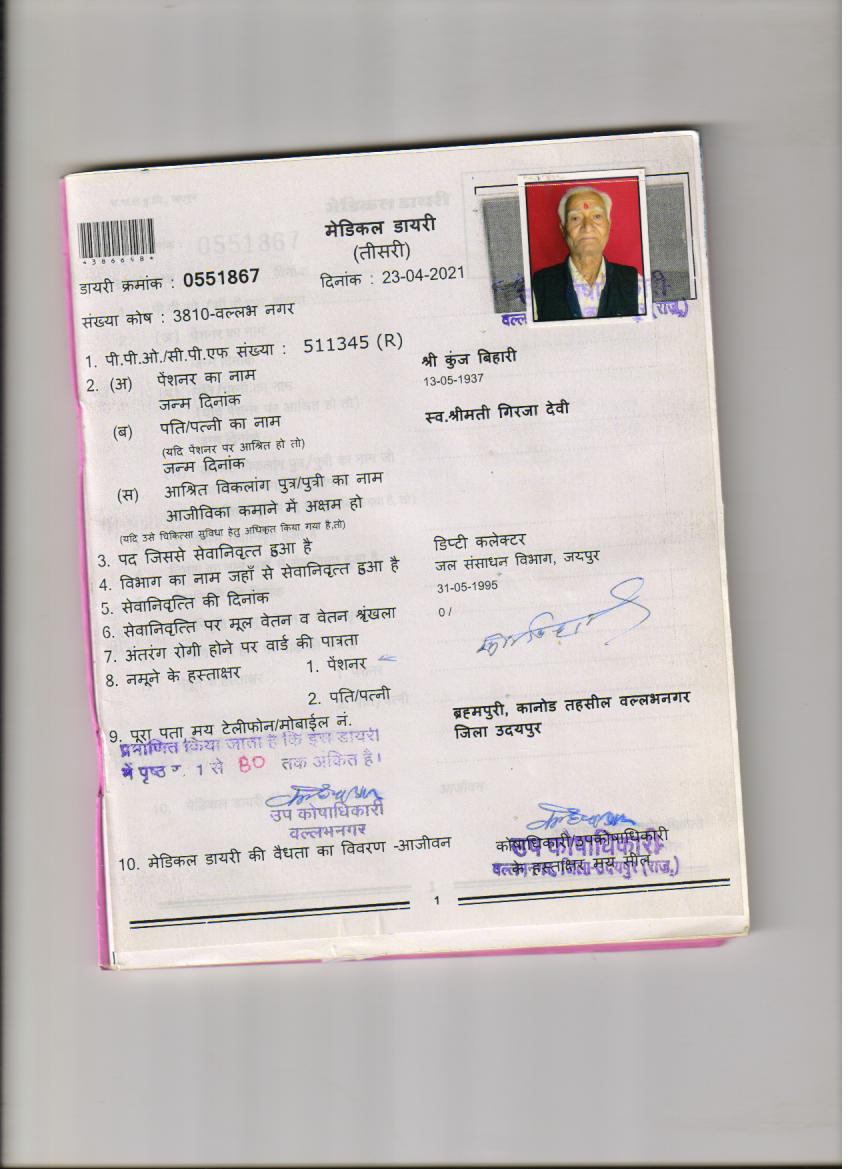 मेडिकल डायरी
(तीसरी)
डायरी क्रमांक : 0551867
दिनांक : 23-04-2021
संख्या कोष : 3810-वल्लभ नगर
1. पी.पी.ओ./सी.पी.एफ संख्या : 511345 (R)
2. (अ) पेंशनर का नाम श्री कुंज बिहारी
जन्म दिनांक 13-05-1937
(ब) पति/पत्नी का नाम स्व.श्रीमती गिरजा देवी
(यदि पेंशनर पर आश्रित हो तो)
जन्म दिनांक
(स) आश्रित विकलांग पुत्र/पुत्री का नाम
आजीविका कमाने में अक्षम हो
(यदि उसे चिकित्सा सुविधा हेतु अधिकृत किया गया है,तो)
3. पद जिससे सेवानिवृत्त हुआ है डिप्टी कलेक्टर
4. विभाग का नाम जहाँ से सेवानिवृत्त हुआ है जल संसाधन विभाग, जयपुर
5. सेवानिवृत्ति की दिनांक 31-05-1995
6. सेवानिवृत्ति पर मूल वेतन व वेतन श्रृंखला 0 /
7. अंतरंग रोगी होने पर वार्ड की पात्रता
8. नमूने के हस्ताक्षर 1. पेंशनर
2. पति/पत्नी
9. पूरा पता मय टेलीफोन/मोबाईल नं. ब्रह्मपुरी, कानोड तहसील वल्लभनगर
जिला उदयपुर
प्रमाणित किया जाता है कि इस डायरी
में पृष्ठ 1 से 80 तक अंकित है।
उप कोषाधिकारी
वल्लभनगर
10. मेडिकल डायरी की वैधता का विवरण -आजीवन
कोषाधिकारी/उपकोषाधिकारी
के हस्ताक्षर मय सील
उप कोषाधिकारी
1